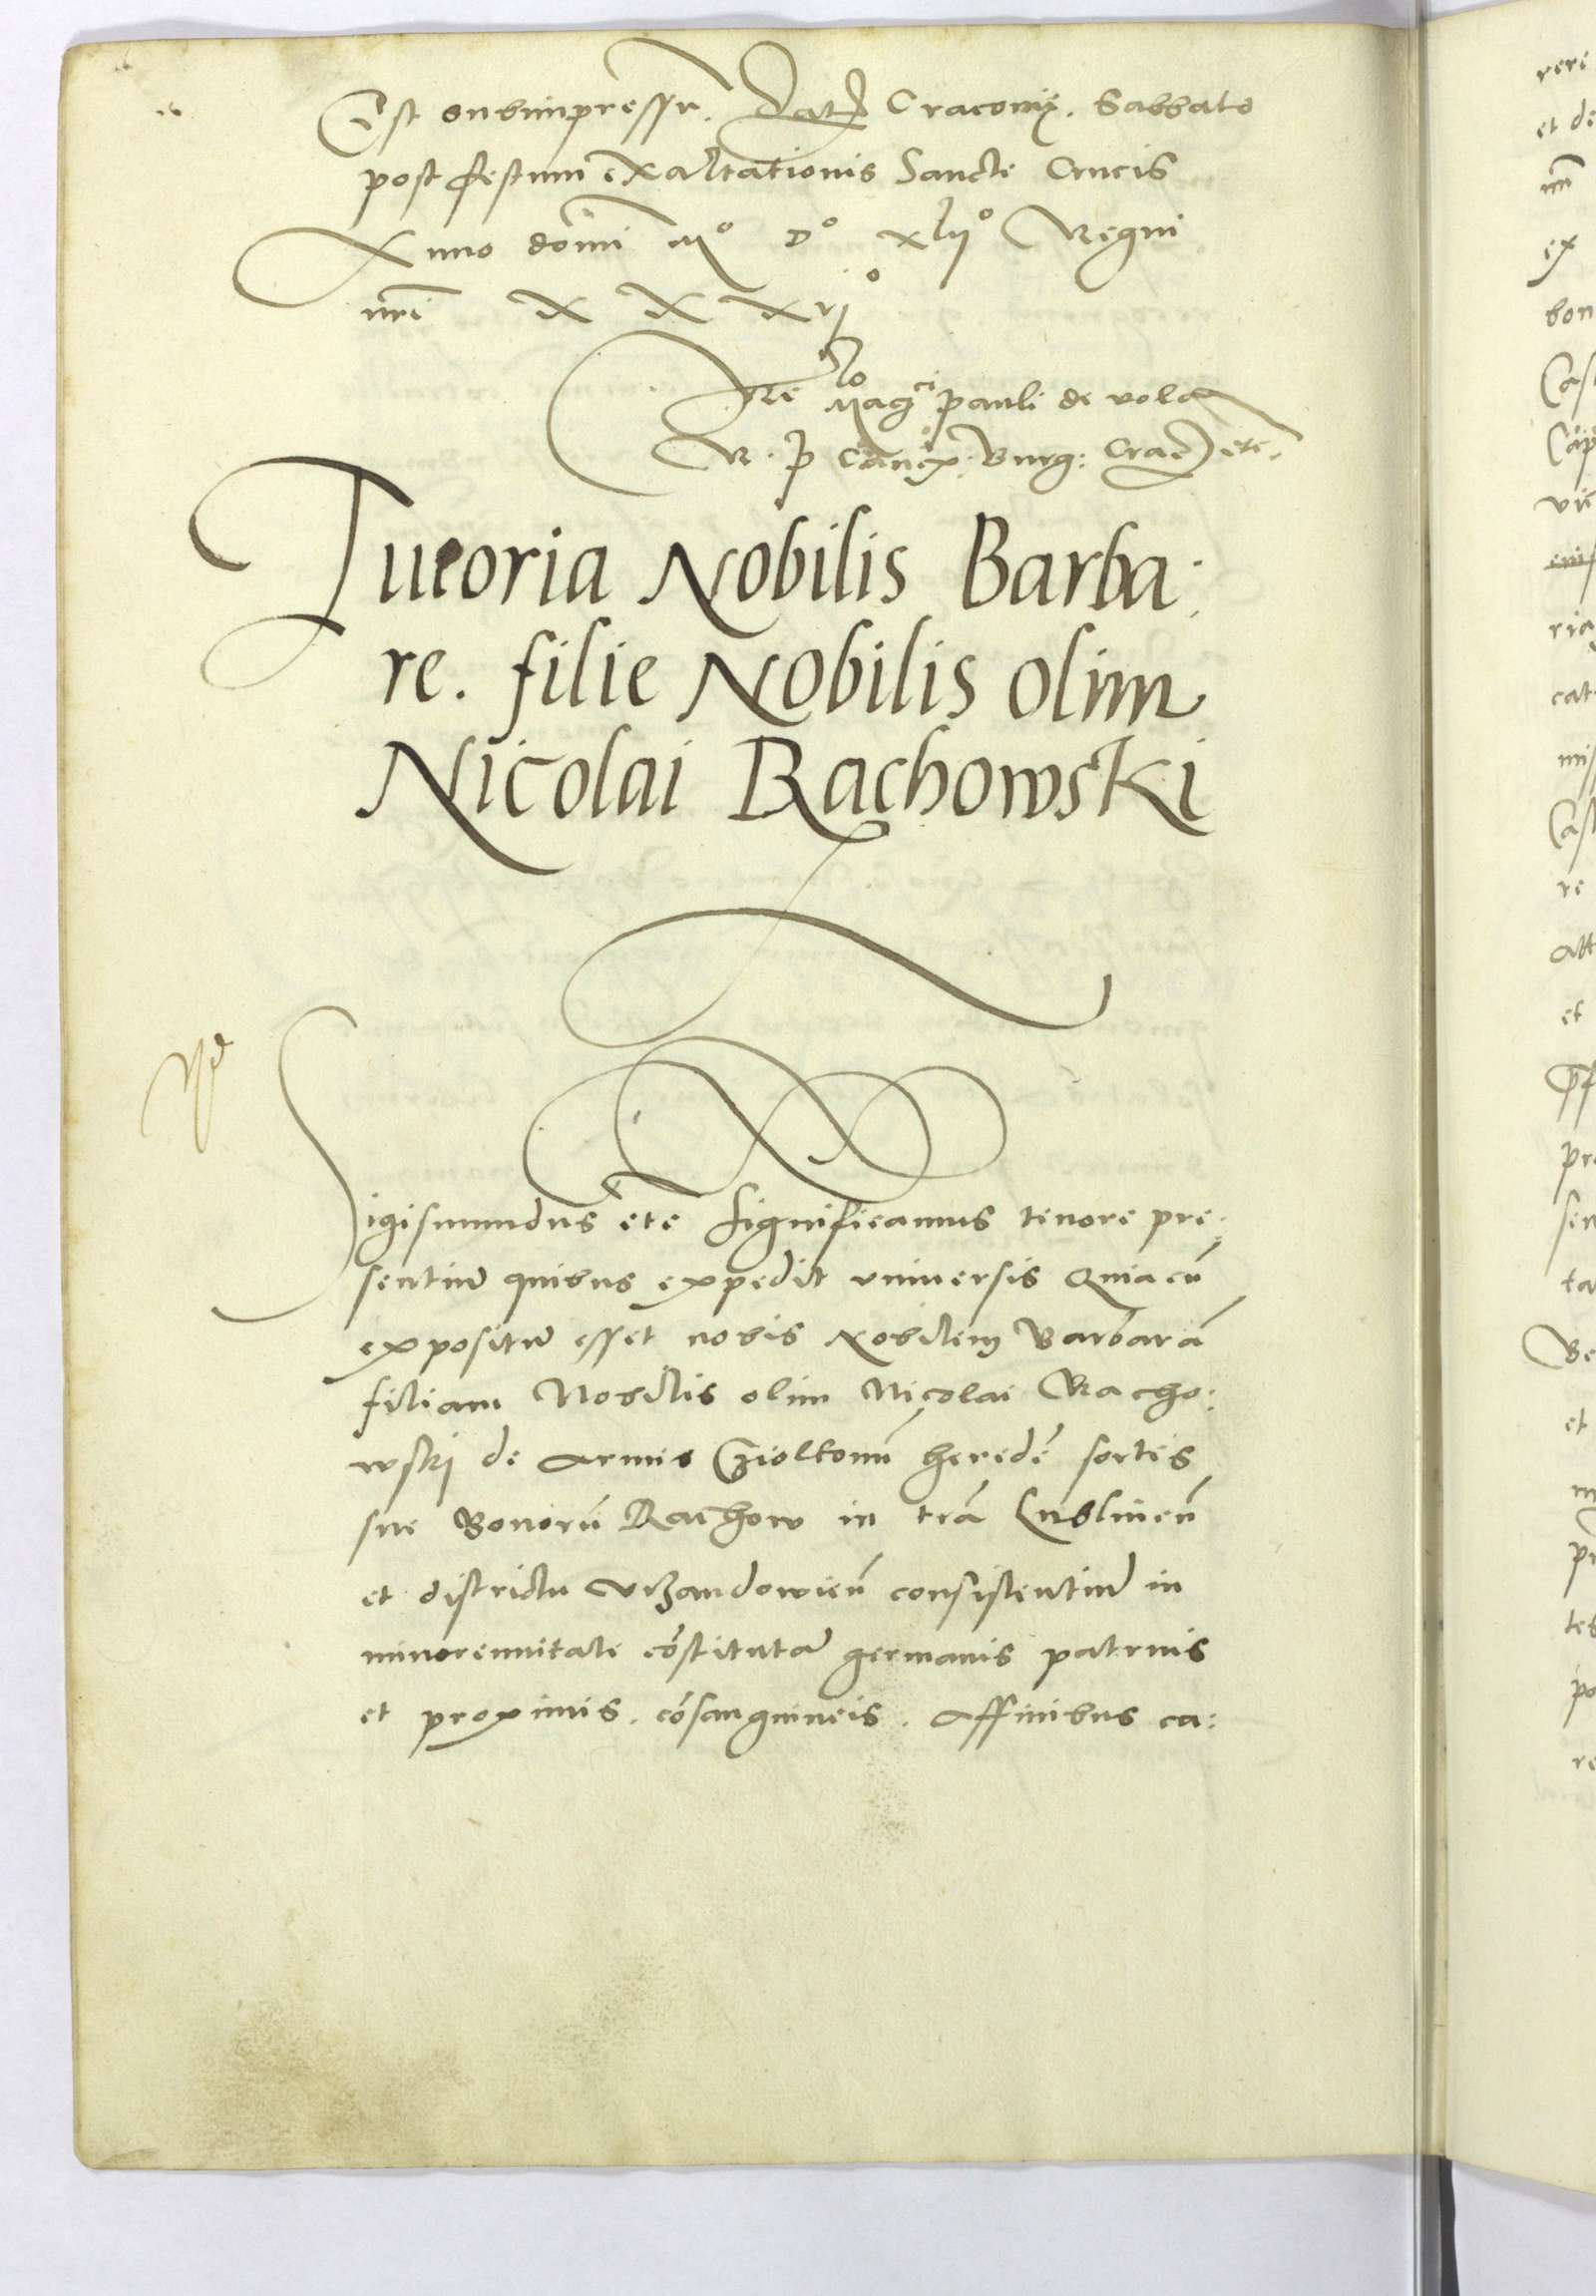 Est subimpressu. Dat Cracovię. Sabbato
post festum exaltationis Sancte Crucis
Anno domi Mº Dº xlijº Regni
nri XXXvjº
Relo Magci pauli de vola
R. P Cancx. Burg: Crac etc.
Tutoria Nobilis Barba:
re. filie Nobilis olim
Nicolai Rachowski
Sigismundus etc significamus tenore pre:
sentium quibus expedit universis Quia cū
expositum esset nobis Nobilem Barbarā
filiam Nobilis olim Nicolai Racho:
wskij de armis heredē sortis
sue Bonorū Rachow in trā Lublineñ
et districtu Vrzandowieñ consistentium in
minorennitate cōstitutam germanis patruis
et proximis. cōsanguineis. Affinibus ca:
rere
et de
ex
bon
Cas
Cap
ria
cat
mis
Cast
re
att
et
pre
sen
ta
Be
et
pr
tes
po
re